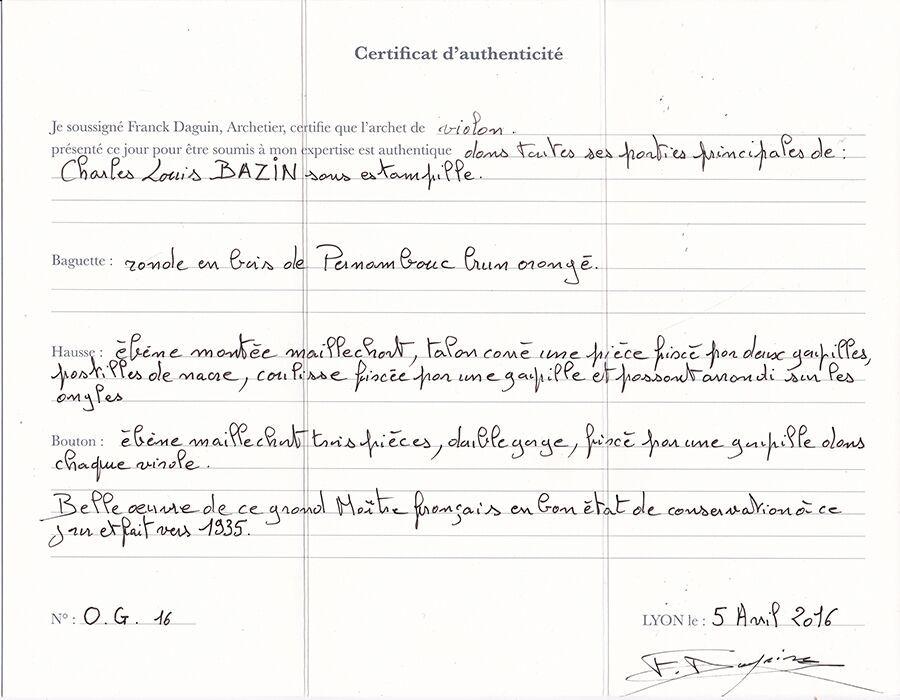 Certificat d'authenticité
Je soussigné Franck Daguin, Archetier, certifie que l'archet de violon.
présenté ce jour pour être soumis à mon expertise est authentique dans toutes ses parties principales de :
Charles Louis BAZIN sans estampille.
Baguette : ronde en bois de Pernambouc brun orangé.
Hausse : ébène montée maillechort, talon carré une pièce fixcé par deux goupilles,
pastilles de nacre, coulisse fixcée par une goupille et passant arrondi sur les
angles
Bouton : ébène maillechort trois pièces, double gorge, fixcé par une goupille dans
chaque virole.
Belle œuvre de ce grand Maître français en bon état de conservation à ce
jour et fait vers 1935.
N° : O.G. 16
LYON le : 5 Avril 2016
F. Daguin